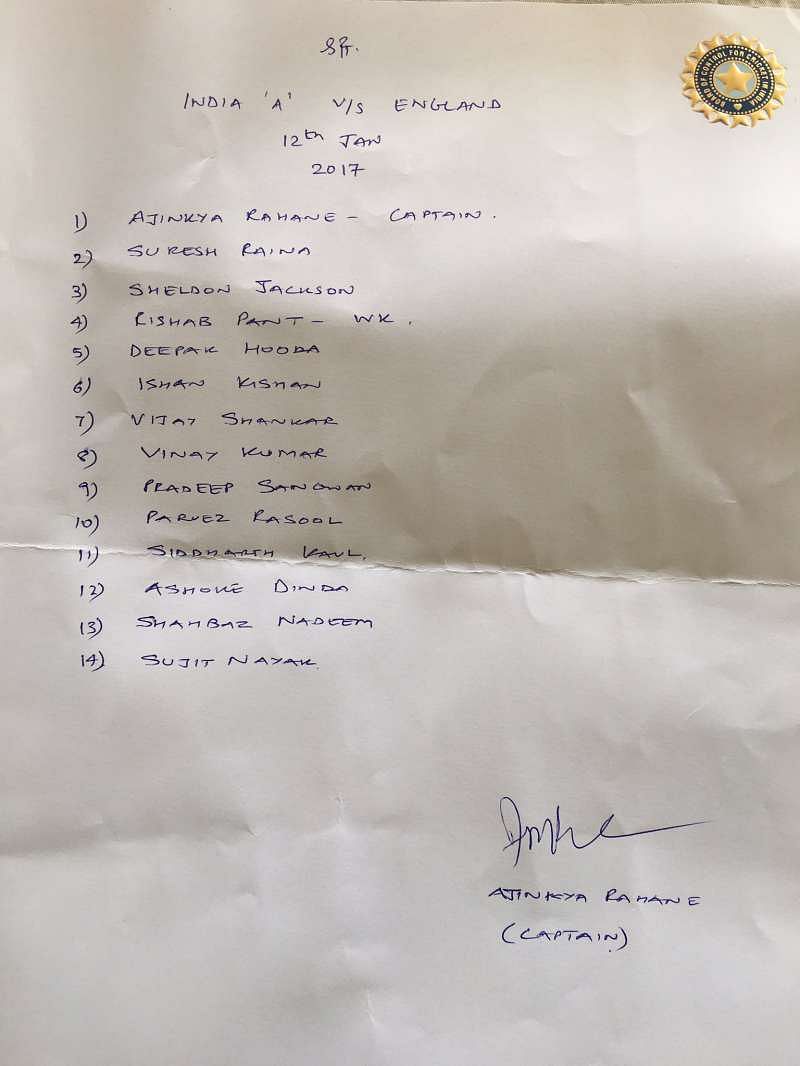 INDIA 'A' V/S ENGLAND
12th JAN
2017
1) AJINKYA RAHANE - CAPTAIN.
2) SURESH RAINA
3) SHELDON JACKSON
4) RISHAB PANT - WK.
5) DEEPAK HOODA
6) ISHAN KISHAN
7) VIJAY SHANKAR
8) VINAY KUMAR
9) PRADEEP SANGWAN
10) PARVEZ RASOOL
11) SIDDHARTH KAUL.
12) ASHOKE DINDA
13) SHAHBAZ NADEEM
14) SUJIT NAYAK.
AJINKYA RAHANE
(CAPTAIN)